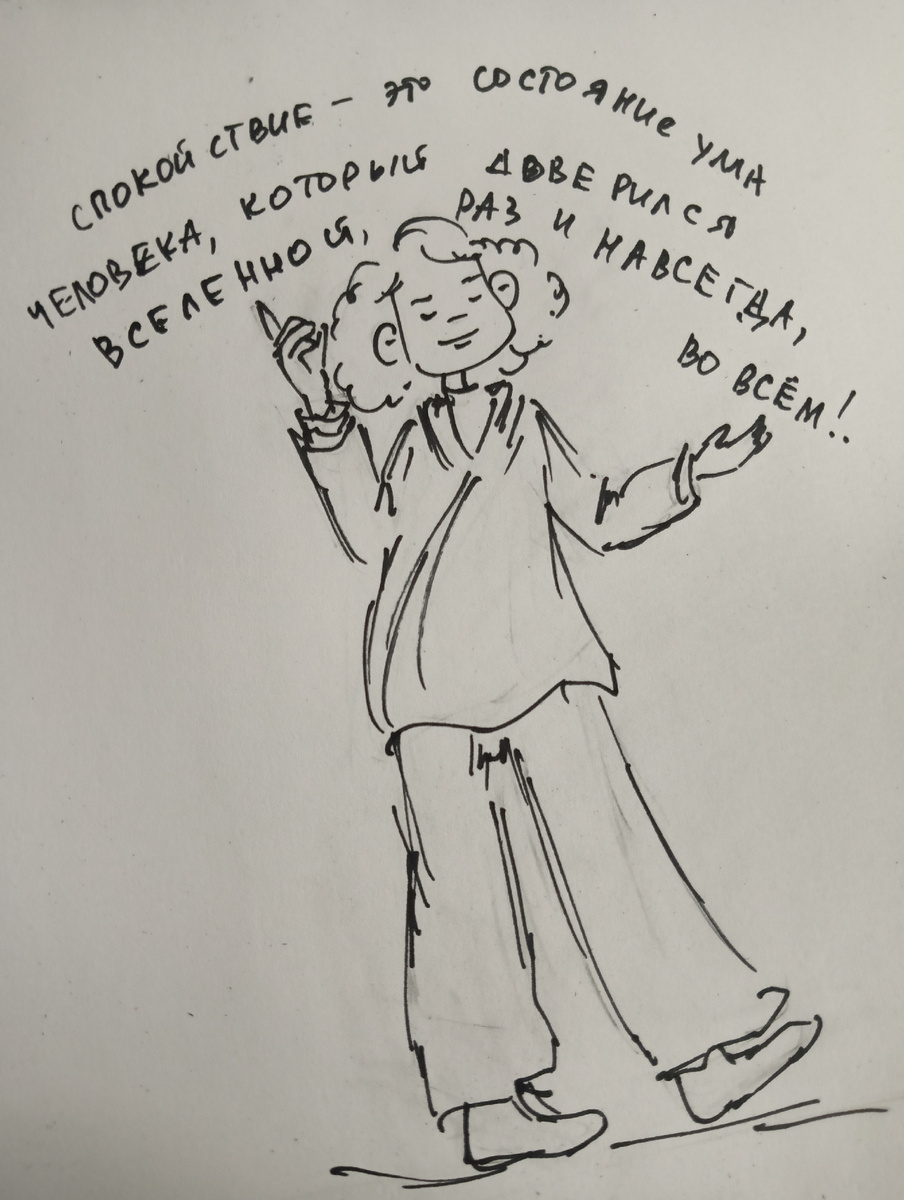 СПОКОЙСТВИЕ – ЭТО СОСТОЯНИЕ УМА
ЧЕЛОВЕКА, КОТОРЫЙ ДОВЕРИЛСЯ
ВСЕЛЕННОЙ, РАЗ И НАВСЕГДА,
ВО ВСЁМ!